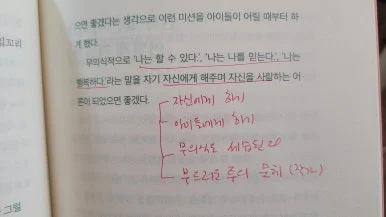 으면 좋겠다는 생각으로 이런 미션을 아이들이 어릴 때부터 하
게 했다.
무의식적으로 '나는 할 수 있다.', '나는 나를 믿는다.', '나는
행복하다.'라는 말을 자기 자신에게 해주며 자신을 사랑하는 어
른이 되었으면 좋겠다.
자신에게 하기
아이들에게 하기
무의식도
부드러운